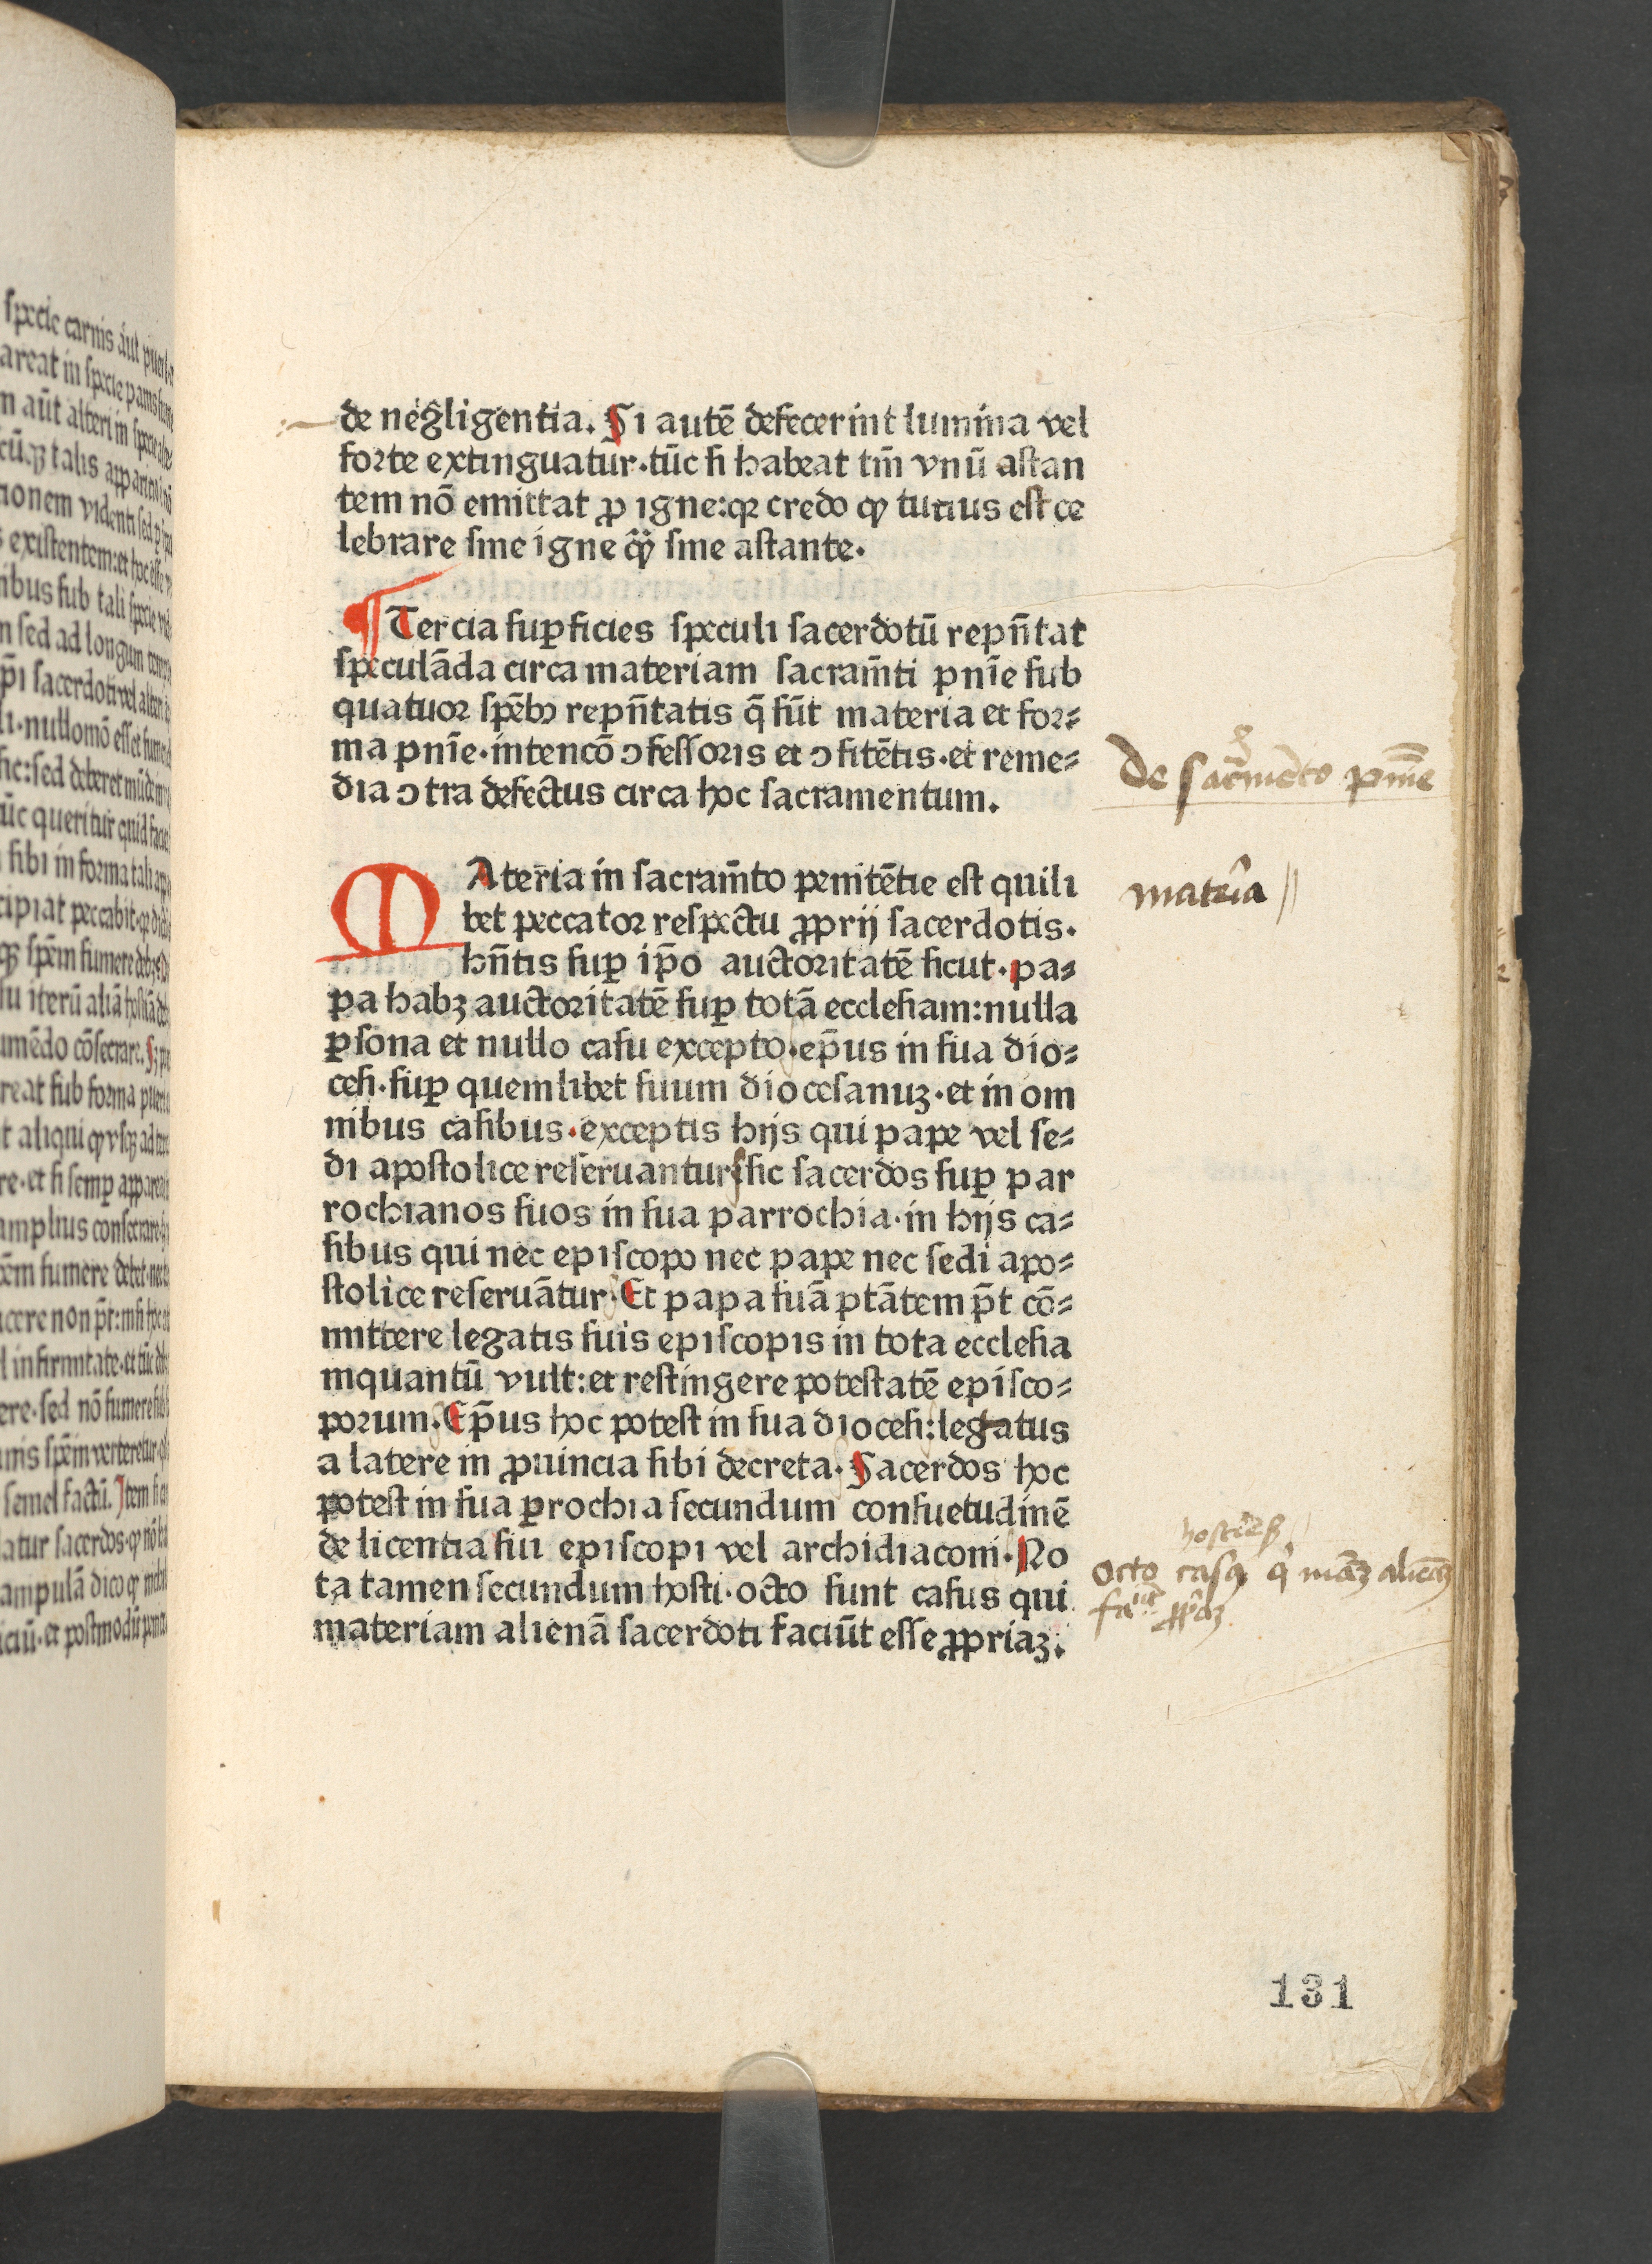 de negligentia. Si autē defecerint lumina vel
forte extinguatur·tūc si habeat tm̄ vnū astan
tem nō emittat ꝓ igne:qꝛ credo ꝙ tutius est ce
lebrare sine igne qͣ̈ꝫ sine astante·
¶ Tercia suꝑficies speculi sacerdotū repn̄tat
speculāda circa materiam sacram̄ti pnīe sub
quatuor spēbꝰ repn̄tatis q̄ sūt materia et for⸗
ma pnīe·intencō ↄfessoris et ↄfitētis·et reme⸗
dia ↄtra defectus circa hoc sacramentum.
MAteria in sacram̄to penitētie est quili
bet peccator respectu ꝓprij sacerdotis·
hn̄tis suꝑ ip̄o auctoritatē sicut·pa⸗
pa habꝫ auctoritatē suꝑ totā ecclesiam:nulla
ꝑsona et nullo casu excepto·ep̄us in sua dio⸗
cesi·suꝑ quemlibet suum diocesanuꝫ·et in om
nibus casibus·exceptis hijs qui pape vel se⸗
di apostolice reseruantur sic sacerdos suꝑ par
rochianos suos in sua parrochia·in hijs ca⸗
sibus qui nec episcopo nec pape nec sedi apo⸗
stolice reseruātur·Et papa suā ptātem p̄t cō⸗
mittere legatis suis episcopis in tota ecclesia
inquantū vult:et restingere potestatē episco⸗
porum·Ep̄us hoc potest in sua diocesi:legatus
a latere in ꝓuincia sibi decreta·Sacerdos hoc
potest in sua ꝑrochia secundum consuetudinē
de licentia sui episcopi vel archidiaconi·No
ta tamen secundum hosti·octo sunt casus qui
materiam alienā sacerdoti faciūt esse ꝓpriaꝫ.
De sacr̄mēto pnīe
materia
octo casꝰ
131